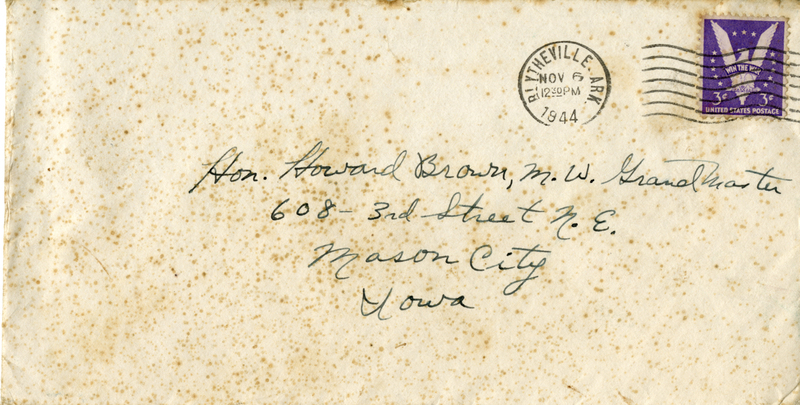 BLYTHEVILLE, ARK.
NOV 6
12 30 PM
1944
WIN THE WAR
3¢ 3¢
UNITED STATES POSTAGE
Hon. Howard Brown, M. W. Grand Master
608 - 3rd Street N. E.
Mason City
Iowa